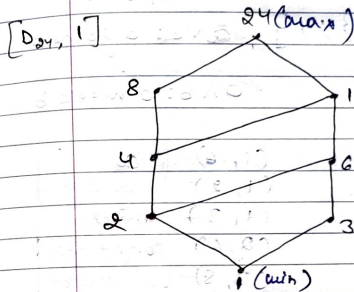 [D24, 1]
24 (max)
8
1
4
6
2
3
1 (min)